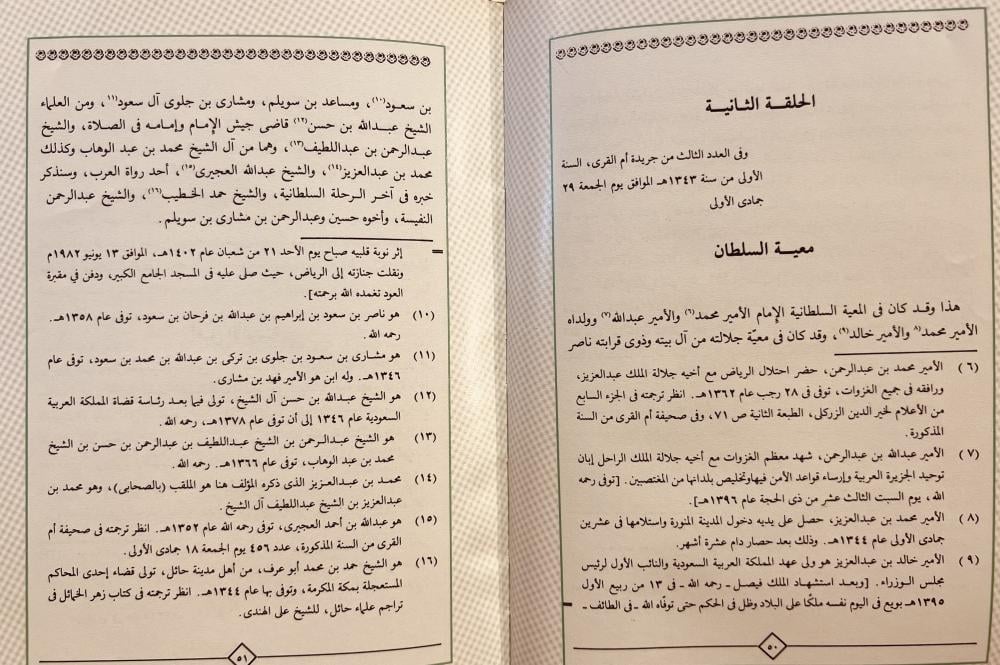 الحلقة الثانية
وفى العدد الثالث من جريدة أم القرى، السنة
الأولى من سنة ١٣٤٣هـ الموافق يوم الجمعة ٢٩
جمادى الأولى
معية السلطان
هذا وقد كان فى المعية السلطانية الإمام الأمير محمد(٦) والأمير عبدالله(٧) وولداه
الأمير محمد(٨) والأمير خالد(٩)، وقد كان فى معيّة جلالته من آل بيته وذوى قرابته ناصر
(٦) الأمير محمد بن عبدالرحمن، حضر احتلال الرياض مع أخيه جلالة الملك عبدالعزيز،
ورافقه فى جميع الغزوات، توفى فى ٢٨ رجب عام ١٣٦٢هـ. انظر ترجمته في الجزء السابع
من الأعلام لخير الدين الزركلى، الطبعة الثانية ص ٧١، وفى صحيفة أم القرى من السنة
المذكورة.
(٧) الأمير عبدالله بن عبدالرحمن، شهد معظم الغزوات مع أخيه جلالة الملك الراحل إبان
توحيد الجزيرة العربية وإرساء قواعد الأمن فيهاوتخليص بلدانها من المغتصبين. [توفى رحمه
الله، يوم السبت الثالث عشر من ذى الحجة عام ١٣٩٦هـ].
(٨) الأمير محمد بن عبدالعزيز، حصل على يديه دخول المدينة المنورة واستلامها فى عشرين
جمادى الأولى عام ١٣٤٤هـ. وذلك بعد حصار دام عشرة أشهر.
(٩) الأمير خالد بن عبدالعزيز هو ولى عهد المملكة العربية السعودية والنائب الأول لرئيس
مجلس الوزراء. [وبعد استشهاد الملك فيصل ـ رحمه الله ـ فى ١٣ من ربيع الأول
١٣٩٥هـ بويع فى اليوم نفسه ملكًا على البلاد وظل فى الحكم حتى توفاه الله ـ فى الطائف ـ
٥٠
بن سعود(١٠)، ومساعد بن سويلم، ومشارى بن جلوى آل سعود(١١)، ومن العلماء
الشيخ عبدالله بن حسن(١٢) قاضى جيش الإمام وإمامه فى الصلاة، والشيخ
عبدالرحمن بن عبداللطيف(١٣)، وهما من آل الشيخ محمد بن عبد الوهاب وكذلك
محمد بن عبدالعزيز(١٤)، والشيخ عبدالله العجيرى(١٥)، أحد رواة العرب، وسنذكر
خبره فى آخر الرحلة السلطانية، والشيخ حمد الخطيب(١٦)، والشيخ عبدالرحمن
النفيسة، وأخوه حسين وعبدالرحمن بن مشارى بن سويلم.
= إثر نوبة قلبيه صباح يوم الأحد ٢١ من شعبان عام ١٤٠٢هـ، الموافق ١٣ يونيو ١٩٨٢م
ونقلت جنازته إلى الرياض، حيث صلى عليه فى المسجد الجامع الكبير، ودفن فى مقبرة
العود تغمده الله برحمته].
(١٠) هو ناصر بن سعود بن إبراهيم بن عبدالله بن فرحان بن سعود، توفى عام ١٣٥٨هـ.
رحمه الله.
(١١) هو مشارى بن سعود بن جلوى بن تركى بن عبدالله بن محمد بن سعود، توفى عام
١٣٤٦هـ. وله ابن هو الأمير فهد بن مشارى.
(١٢) هو الشيخ عبدالله بن حسن آل الشيخ، تولى فيما بعد رئاسة قضاة المملكة العربية
السعودية عام ١٣٤٦ إلى أن توفى عام ١٣٧٨هـ، رحمه الله.
(١٣) هو الشيخ عبدالرحمن بن الشيخ عبداللطيف بن عبدالرحمن بن حسن بن الشيخ
محمد بن عبد الوهاب، توفى عام ١٣٦٦هـ. رحمه الله.
(١٤) محمد بن عبدالعزيز الذى ذكره المؤلف هنا هو الملقب (بالصحابى)، وهو محمد بن
عبدالعزيز بن الشيخ عبداللطيف آل الشيخ.
(١٥) هو عبدالله بن أحمد العجيرى، توفى رحمه الله عام ١٣٥٢هـ. انظر ترجمته فى صحيفة أم
القرى من السنة المذكورة، عدد ٤٥٦ يوم الجمعة ١٨ جمادى الأولى.
(١٦) هو الشيخ حمد بن محمد أبو عرف، من أهل مدينة حائل، تولى قضاء إحدى المحاكم
المستعجلة بمكة المكرمة، وتوفى بها عام ١٣٤٤هـ. انظر ترجمته فى كتاب زهر الخمائل فى
تراجم علماء حائل، للشيخ على الهندى.
٥١